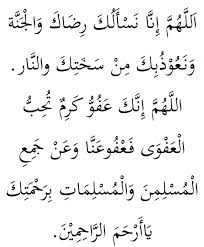 اَللَّهُمَّ إِنَّا نَسْأَلُكَ رِضَاكَ وَالْجَنَّةَ
وَنَعُوْذُبِكَ مِنْ سَخَتِكَ وَالنَّار.
اللَّهُمَّ إِنَّكَ عَفُوُّ كَرِمٌ تُحِبُّ
الْعَفْوَى فَعْفُوعَنَّا وَعَنْ جَمِعِ
الْمُسْلِمِنَ وَالْمُسْلِمَاتِ بِرَحْمَتِكَ
يَاأَرْحَمَ الرَّاحِمِيْنَ.